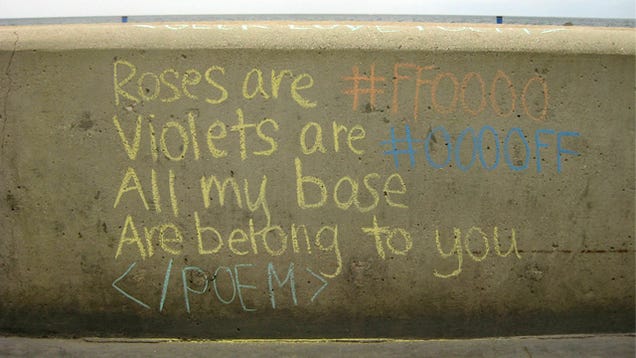 Roses are #FF0000
Violets are #0000FF
All my base
Are belong to you
</POEM>